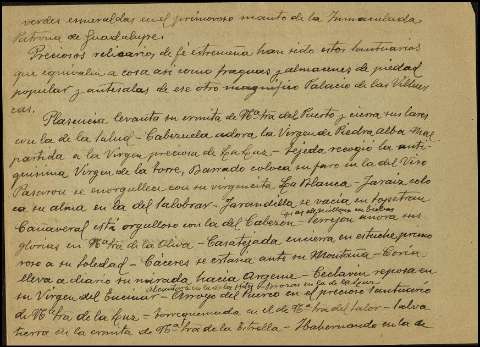 verdes esmeraldas en el primoroso manto de la Inmaculada,
Patrona de Guadalupe.
Preciosos relicarios de fé extremeña han sido estos Santuarios
que equivalen a cosa así como fraguas y almacenes de piedad
popular y antesalas de ese otro magnífico Palacio de las Villuer
cas.
Plasencia levanta su ermita de Nª Srª del Puerto y cierra sus lares
con la de la Salud - Cabezuela adora la Virgen de Piedra alba - Mal
partida a la Virgen preciosa de la Luz - Tejeda recogió la anti-
quísima Virgen de la torre, Barrado coloca su faro en la del Viso
Pasaron se enorgullece con su virgencita La Blanca - Jaraíz colo
ca su alma en la del Salobrar - Jarandilla se vacía en Sopetran
Cañaveral está orgulloso con la del Cabezón - Torrejon añora sus
glorias en Nª Srª de la Oliva - Casatejada encierra en estuche primo
roso a su Soledad - Cáceres se extasía ante su Montaña - Coria
lleva a diario su mirada hacia Argeme - Ceclavin reposa en
su Virgen del Encinar - Arroyo del Puerco en el precioso Santuario
de Nª Srª de la Luz - Torrequemada en el de Nª Srª del Salor - Salva
tierra en la ermita de Nª Srª de la Estrella - Ibahernando en la de